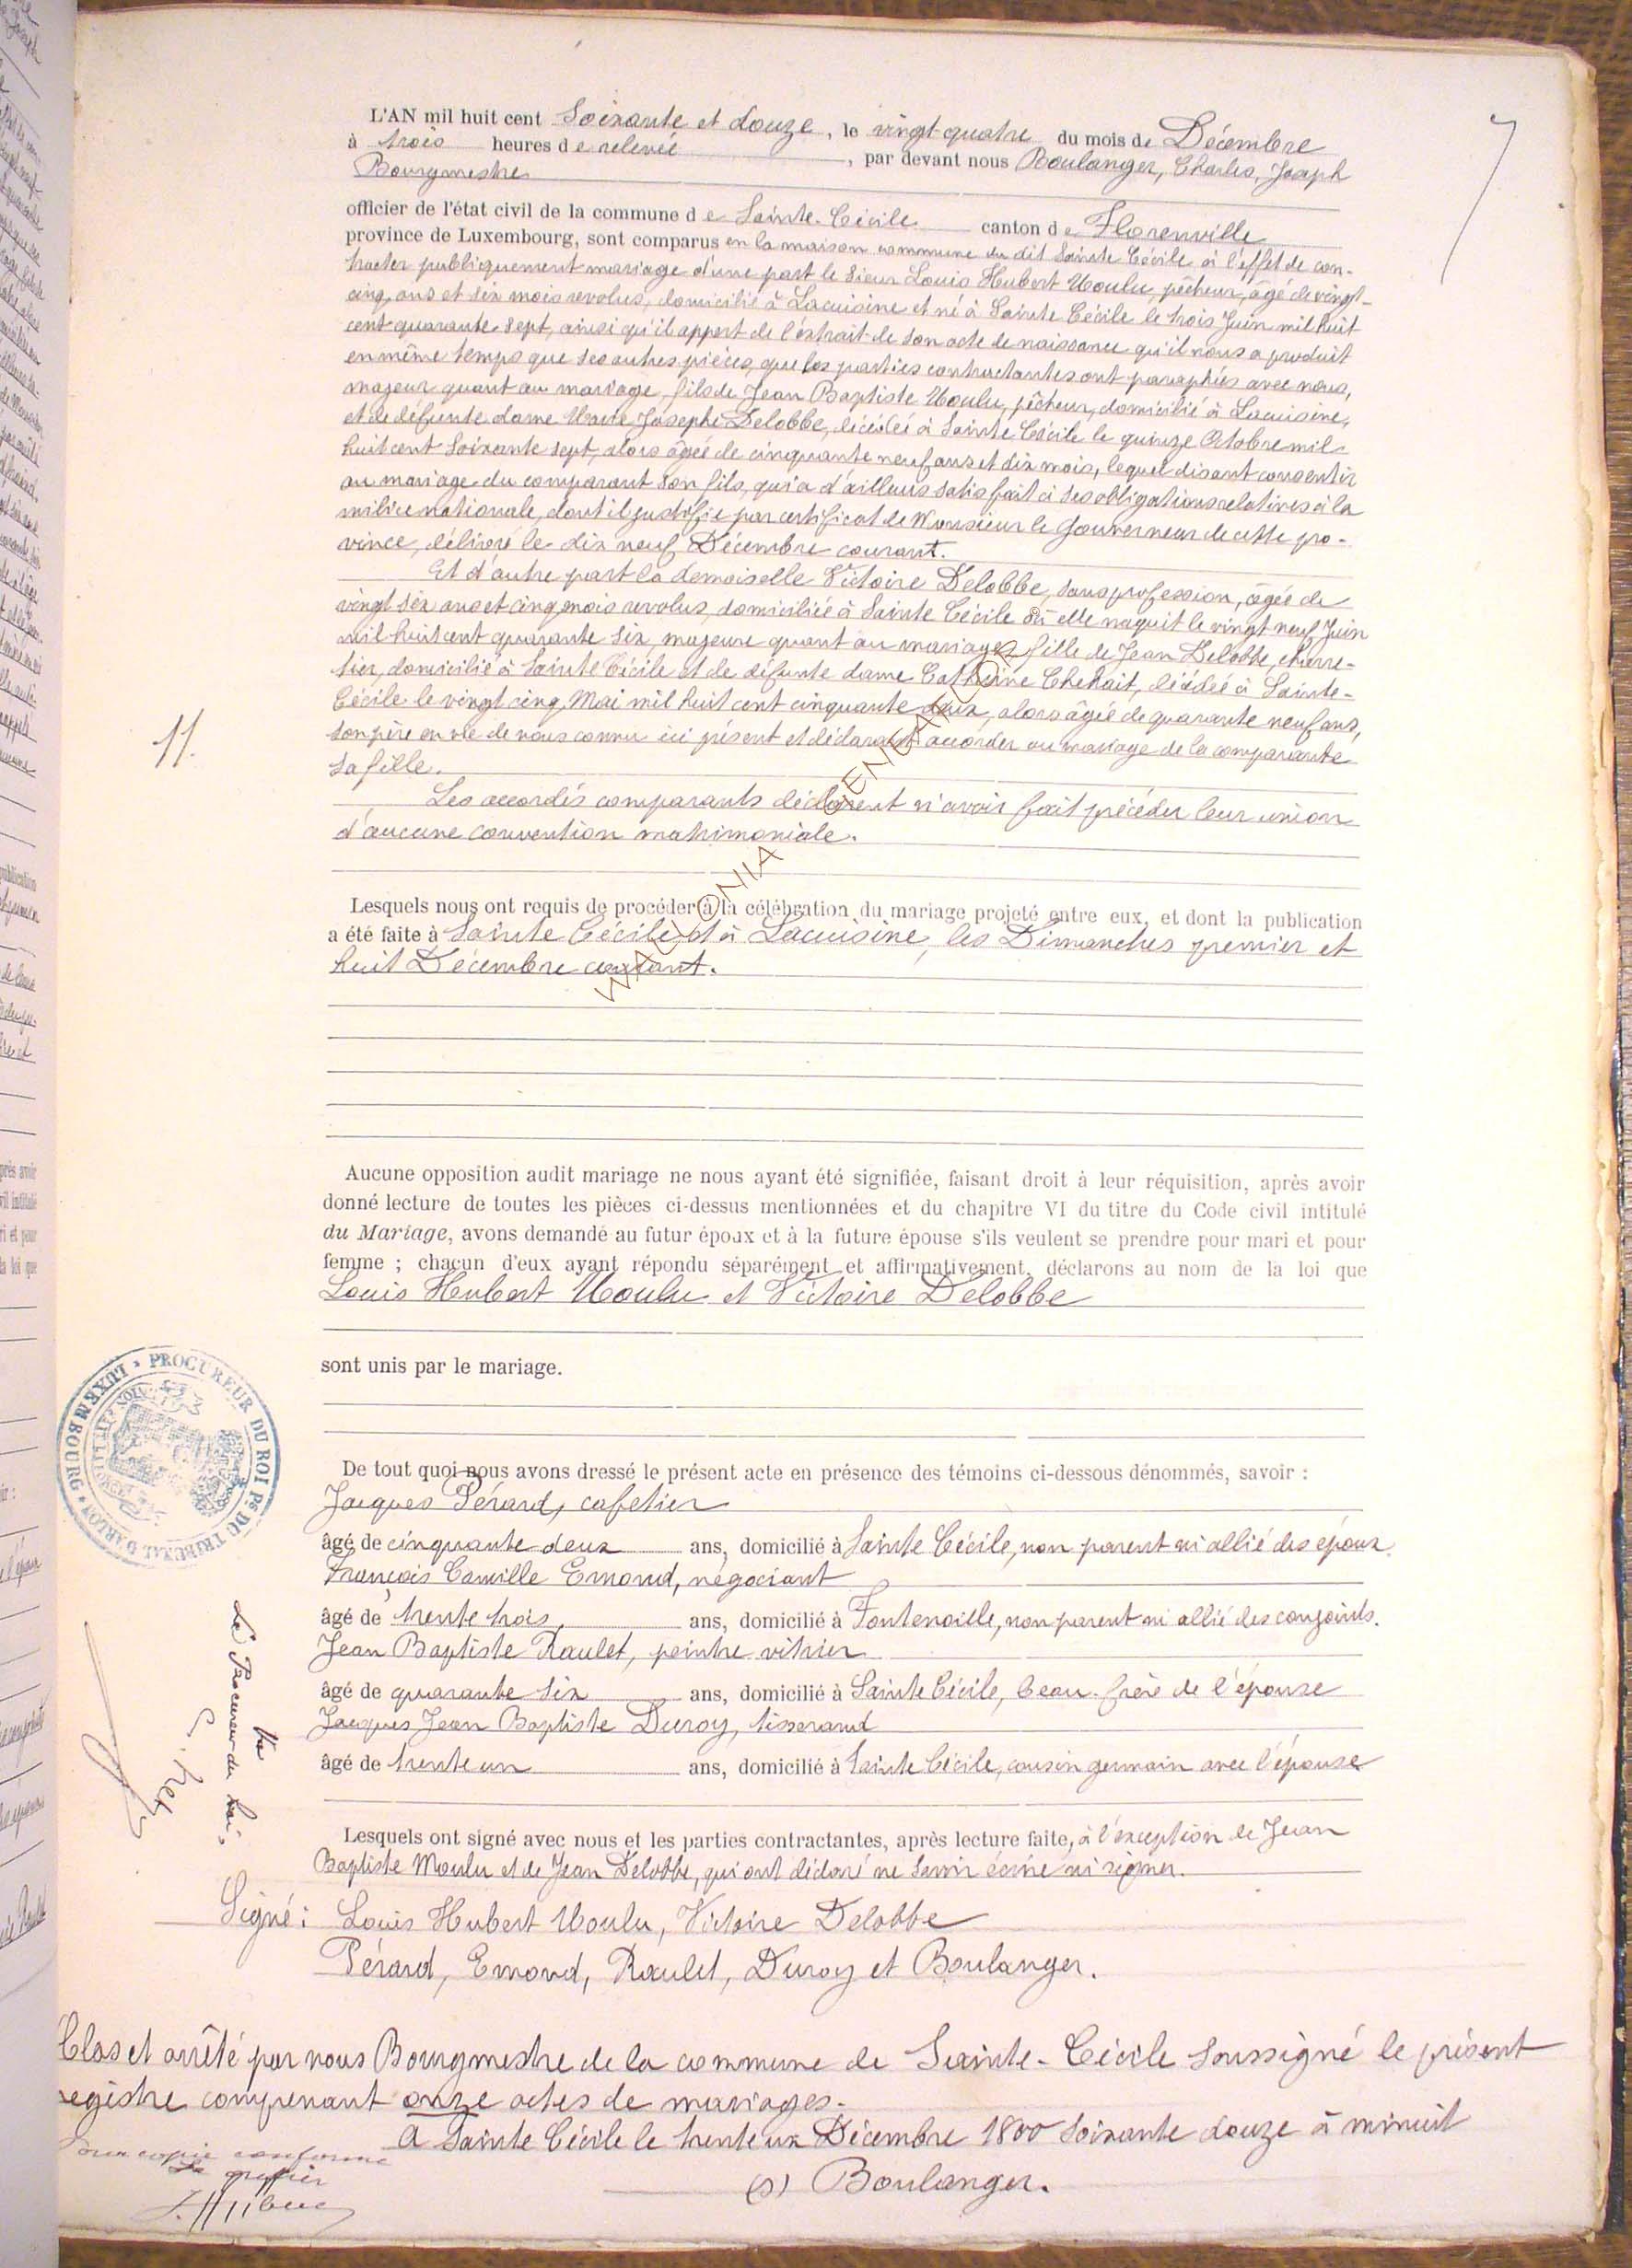 7
L'AN mil huit cent Soixante et douze, le vingt-quatre du mois de Décembre
à trois heures de relevée, par devant nous Boulanger, Charles, Joseph
Bourgmestre
officier de l'état civil de la commune de Sainte-Cécile canton de Florenville
province de Luxembourg, sont comparus en la maison commune du dit Sainte Cécile à l'effet de con-
tracter publiquement mariage d'une part le Sieur Louis Hubert Moulu, pêcheur, âgé de vingt-
cinq ans et six mois revolus, domicilié à Lacuisine et né à Sainte Cécile le trois Juin mil huit
cent quarante sept, ainsi qu'il appert de l'extrait de son acte de naissance qu'il nous a produit
en même temps que ses autres pièces, que les parties contractantes ont paraphées avec nous,
majeur quant au mariage, fils de Jean Baptiste Moulu, pêcheur, domicilié à Lacuisine,
et de défunte dame Marie Josephe Delobbe, décédée à Sainte Cécile le quinze Octobre mil
huit cent soixante sept, alors âgée de cinquante neuf ans et dix mois, lequel disant consentir
au mariage du comparant son fils, qui a d'ailleurs satisfait à ses obligations relatives à la
milice nationale, dont il justifie par certificat de Monsieur le Gouverneur de cette pro-
vince, délivré le dix neuf Décembre courant.
Et d'autre part la demoiselle Victoire Delobbe, sans profession, âgée de
vingt six ans et cinq mois revolus, domiciliée à Sainte Cécile où elle naquit le vingt neuf Juin
mil huit cent quarante six, majeure quant au mariage, fille de Jean Delobbe, charre-
tier, domicilié à Sainte Cécile et de défunte dame Catherine Chehait, décédée à Sainte-
Cécile le vingt cinq Mai mil huit cent cinquante deux, alors âgée de quarante neuf ans,
son père en vie de nous connu ici présent et déclarant accorder au mariage de la comparante
sa fille.
11.
Les accordés comparants déclarent n'avoir fait précéder leur union
d'aucune convention matrimoniale.
WALLONIA GENEALOGIE
Lesquels nous ont requis de procéder à la célébration du mariage projeté entre eux, et dont la publication
a été faite à Sainte Cécile et à Lacuisine, les Dimanches premier et
huit Décembre courant.
Aucune opposition audit mariage ne nous ayant été signifiée, faisant droit à leur réquisition, après avoir
donné lecture de toutes les pièces ci-dessus mentionnées et du chapitre VI du titre du Code civil intitulé
du Mariage, avons demandé au futur époux et à la future épouse s'ils veulent se prendre pour mari et pour
femme ; chacun d'eux ayant répondu séparément et affirmativement, déclarons au nom de la loi que
Louis Hubert Moulu et Victoire Delobbe
sont unis par le mariage.
PROCUREUR DU ROI PS DU TRIBUNAL D'ARLON * LUXEMBOURG *
De tout quoi nous avons dressé le présent acte en présence des témoins ci-dessous dénommés, savoir :
Jacques Pérard, cafetier
âgé de cinquante deux ans, domicilié à Sainte Cécile, non parent ni allié des époux.
François Camille Emond, négociant
âgé de trente trois, ans, domicilié à Fontenoille, non parent ni allié des conjoints.
Jean Baptiste Raulet, peintre vitrier
âgé de quarante six ans, domicilié à Sainte Cécile, beau-frère de l'épouse
Jacques Jean Baptiste Duroy, tisserand
âgé de trente un ans, domicilié à Sainte Cécile, cousin germain avec l'épouse
Vu
Le Procureur du Roi,
Lesquels ont signé avec nous et les parties contractantes, après lecture faite, à l'exception de Jean
Baptiste Moulu et de Jean Delobbe, qui ont déclaré ne savoir écrire ni signer.
Signé : Louis Hubert Moulu, Victoire Delobbe
Pérard, Emond, Raulet, Duroy et Boulanger.
Clos et arrêté par nous Bourgmestre de la commune de Sainte-Cécile soussigné le présent
registre comprenant onze actes de mariages.
A Sainte Cécile le trente un Décembre 1800 soixante douze à minuit
(s) Boulanger.
Pour copie conforme
Le greffier